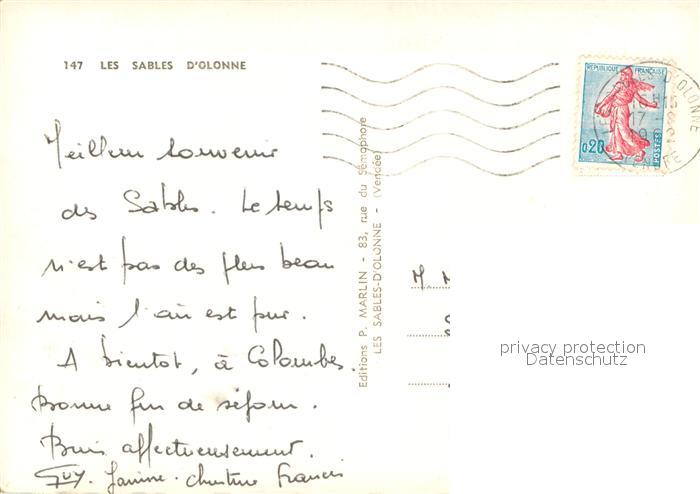 147 LES SABLES D'OLONNE
Meilleur souvenir
des Sables. Le temps
n'est pas des plus beau
mais l'air est pur.
A bientot, à Colombes.
Bonne fin de séjour.
Bons affectueusement.
Guy. Janine. Christine Francis
Editions P. MARLIN - 83, rue du Sémaphore
LES SABLES-D'OLONNE - (Vendée)
REPUBLIQUE FRANÇAISE
0,20
POSTES
D'OLONNE
16H15
17 -8
M.
privacy protection
Datenschutz